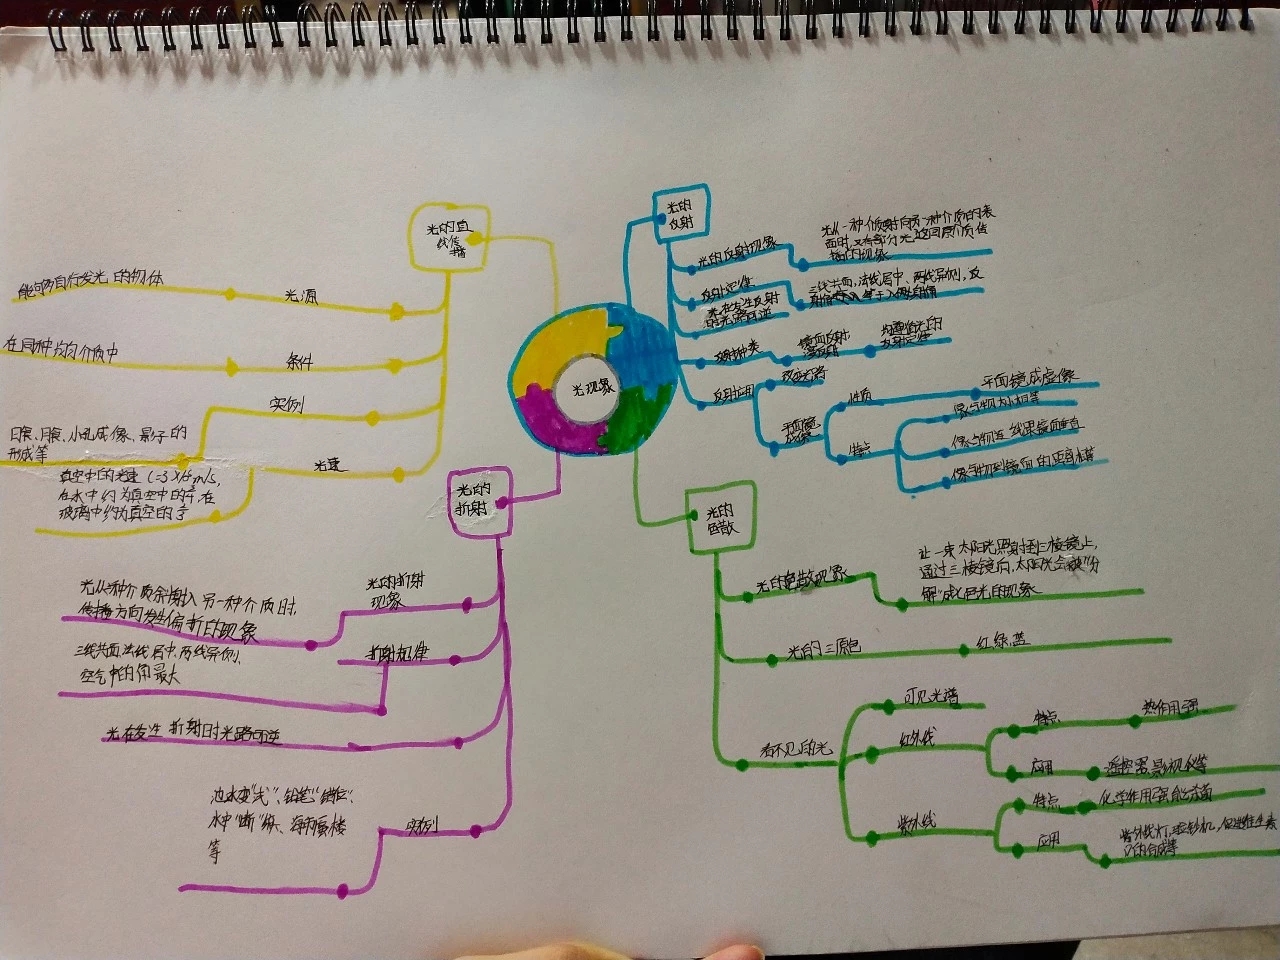 光现象
光的直
线传
播
光源
能够自行发光的物体
条件
在同种均匀介质中
实例
日食、月食、小孔成像、影子的
形成等
光速
真空中的光速
在水中约为真空中的
在
玻璃中约为真空的
光的
反射
光的反射现象
光从一种介质射向另一种介质的表
面时,又有部分光返回原介质传
播的现象
反射定律
三线共面,法线居中,两线异侧,反
射角等于入射角
光在发生反射
时光路可逆
反射种类
镜面反射,
漫反射
均遵循光的
反射定律
反射应用
改变光路
平面镜
成像
性质
平面镜成虚像
特点
像与物大小相等
像与物连线跟镜面垂直
像与物到镜面的距离
光的
折射
光的折射
现象
光从一种介质斜射入另一种介质时,
传播方向发生偏折的现象
折射规律
三线共面法线居中,两线异侧,
空气中的角最大
光在发生折射时光路可逆
实例
池水变“浅”、铅笔“错位”、
水中“断”筷、海市蜃楼
等
光的
色散
光的色散现象
让一束太阳光照射到三棱镜上,
通过三棱镜后,太阳光会被“分
解”成七色光的现象
光的三原色
红绿蓝
看不见的光
可见光谱
红外线
特点
热作用强
应用
遥控器,影视仪等
紫外线
特点
化学作用强能杀菌
应用
紫外线灯,验钞机,促进维生素
D的合成等